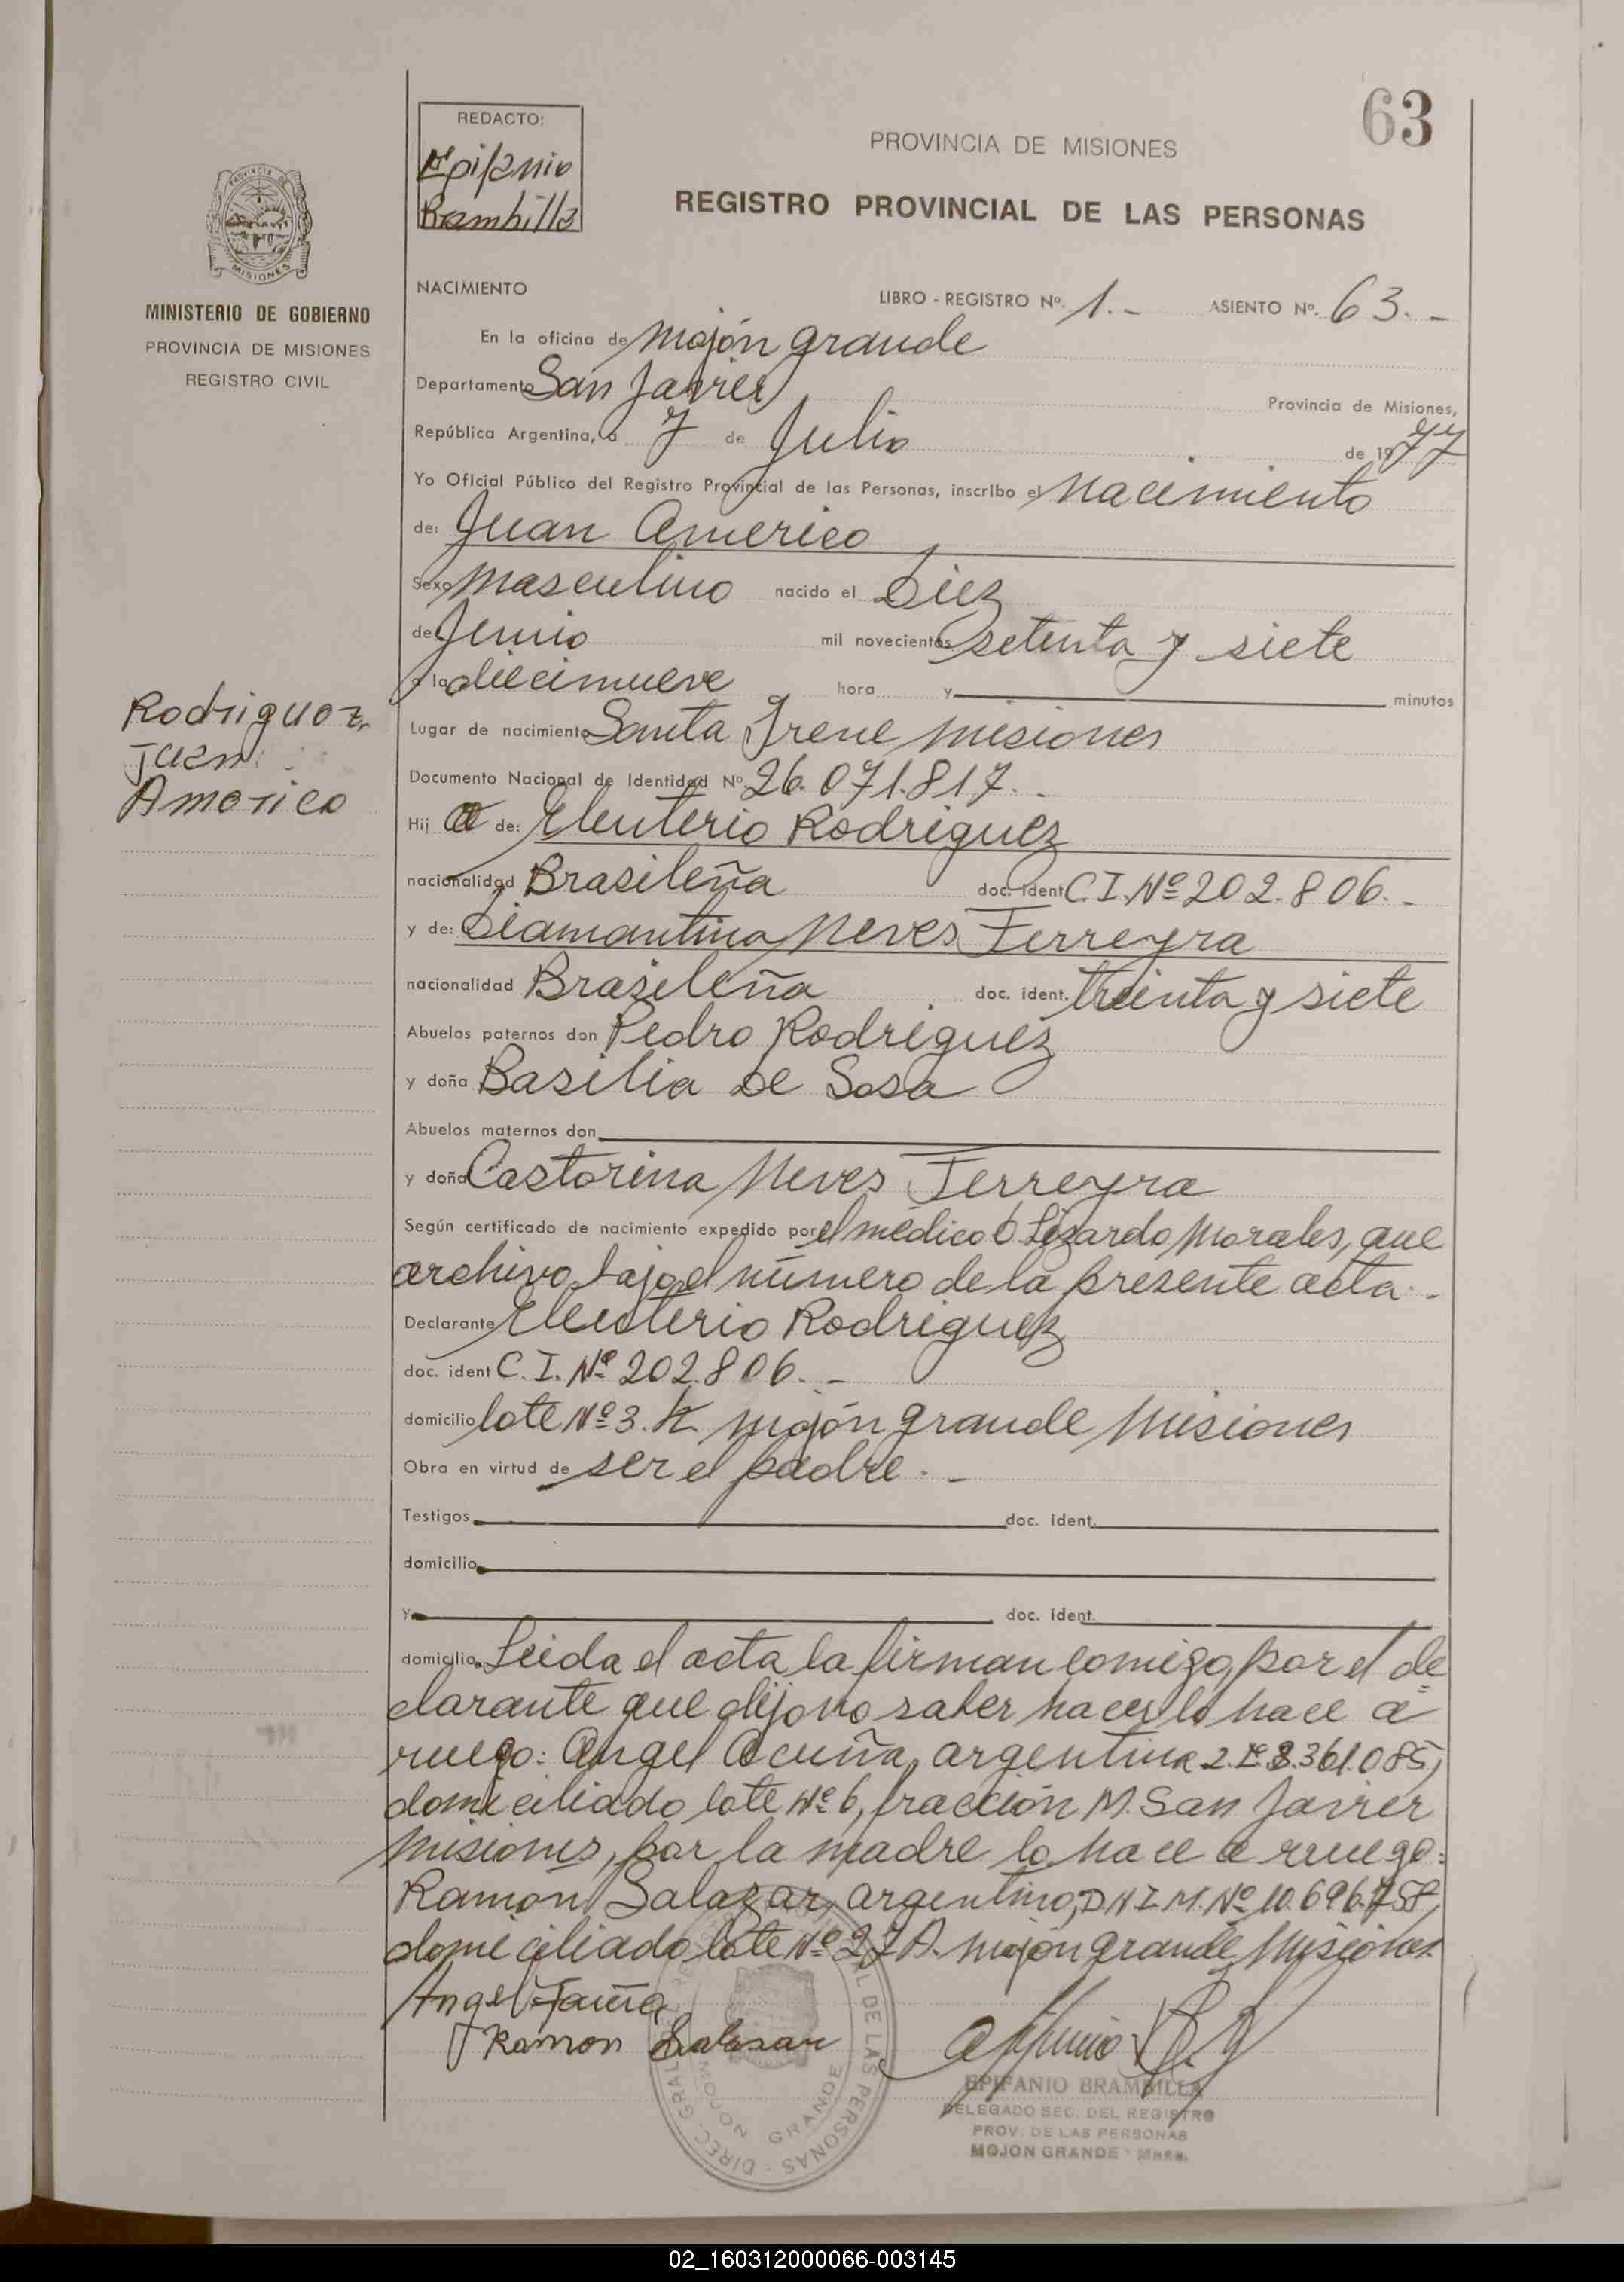 63
REDACTO:
Epifanio
Brambilla
PROVINCIA DE MISIONES
REGISTRO PROVINCIAL DE LAS PERSONAS
PROVINCIA DE
MISIONES
MINISTERIO DE GOBIERNO
PROVINCIA DE MISIONES
REGISTRO CIVIL
NACIMIENTO
LIBRO - REGISTRO Nº. 1.- ASIENTO Nº. 63.-
En la oficina de Mojón grande
Departamento San Javier
Provincia de Misiones,
República Argentina, a 7 de Julio de 1977
Yo Oficial Público del Registro Provincial de las Personas, inscribo el Nacimiento
de: Juan Americo
Sexo Masculino nacido el Diez
de Junio mil novecientos setenta y siete
a la diecinueve hora y minutos
Rodriguez,
Juan
Americo
Lugar de nacimiento Santa Irene Misiones
Documento Nacional de Identidad Nº 26.071.817.-
Hij o de: Eleuterio Rodriguez
nacionalidad Brasileña doc. ident C.I. Nº 202.806.-
y de: Diamantina Neves Ferreyra
nacionalidad Brasileña doc. ident. treinta y siete
Abuelos paternos don Pedro Rodriguez
y doña Basilia de Sosa
Abuelos maternos don
y doña Castorina Neves Ferreyra
Según certificado de nacimiento expedido por el médico Lizardo Morales, que
archivo bajo el número de la presente acta.-
Declarante Eleuterio Rodriguez
doc. ident C. I. Nº 202.806.-
domicilio lote Nº 3. K. Mojón grande Misiones
Obra en virtud de ser el padre.-
Testigos doc. ident.
domicilio
y doc. ident.
domicilio. Leida el acta la firman comigo, por el de
clarante que dijo no saber hacerlo hace a
ruego: Angel Acuña, argentino 361.085,
domiciliado lote Nº 6, fracción M. San Javier
Misiones, por la madre lo hace a ruego:
Ramón Salazar, argentino, D N I M. Nº 10.696.758,
domiciliado lote Nº 27 A. Mojón grande Misiones
Angel
Ramon Salasar
DIREC. GRAL. DE LAS PERSONAS
MOJON GRANDE
EPIFANIO BRAMBILLA
DELEGADO SEC. DEL REGISTRO
PROV. DE LAS PERSONAS
MOJON GRANDE - Mnes.
02_160312000066-003145